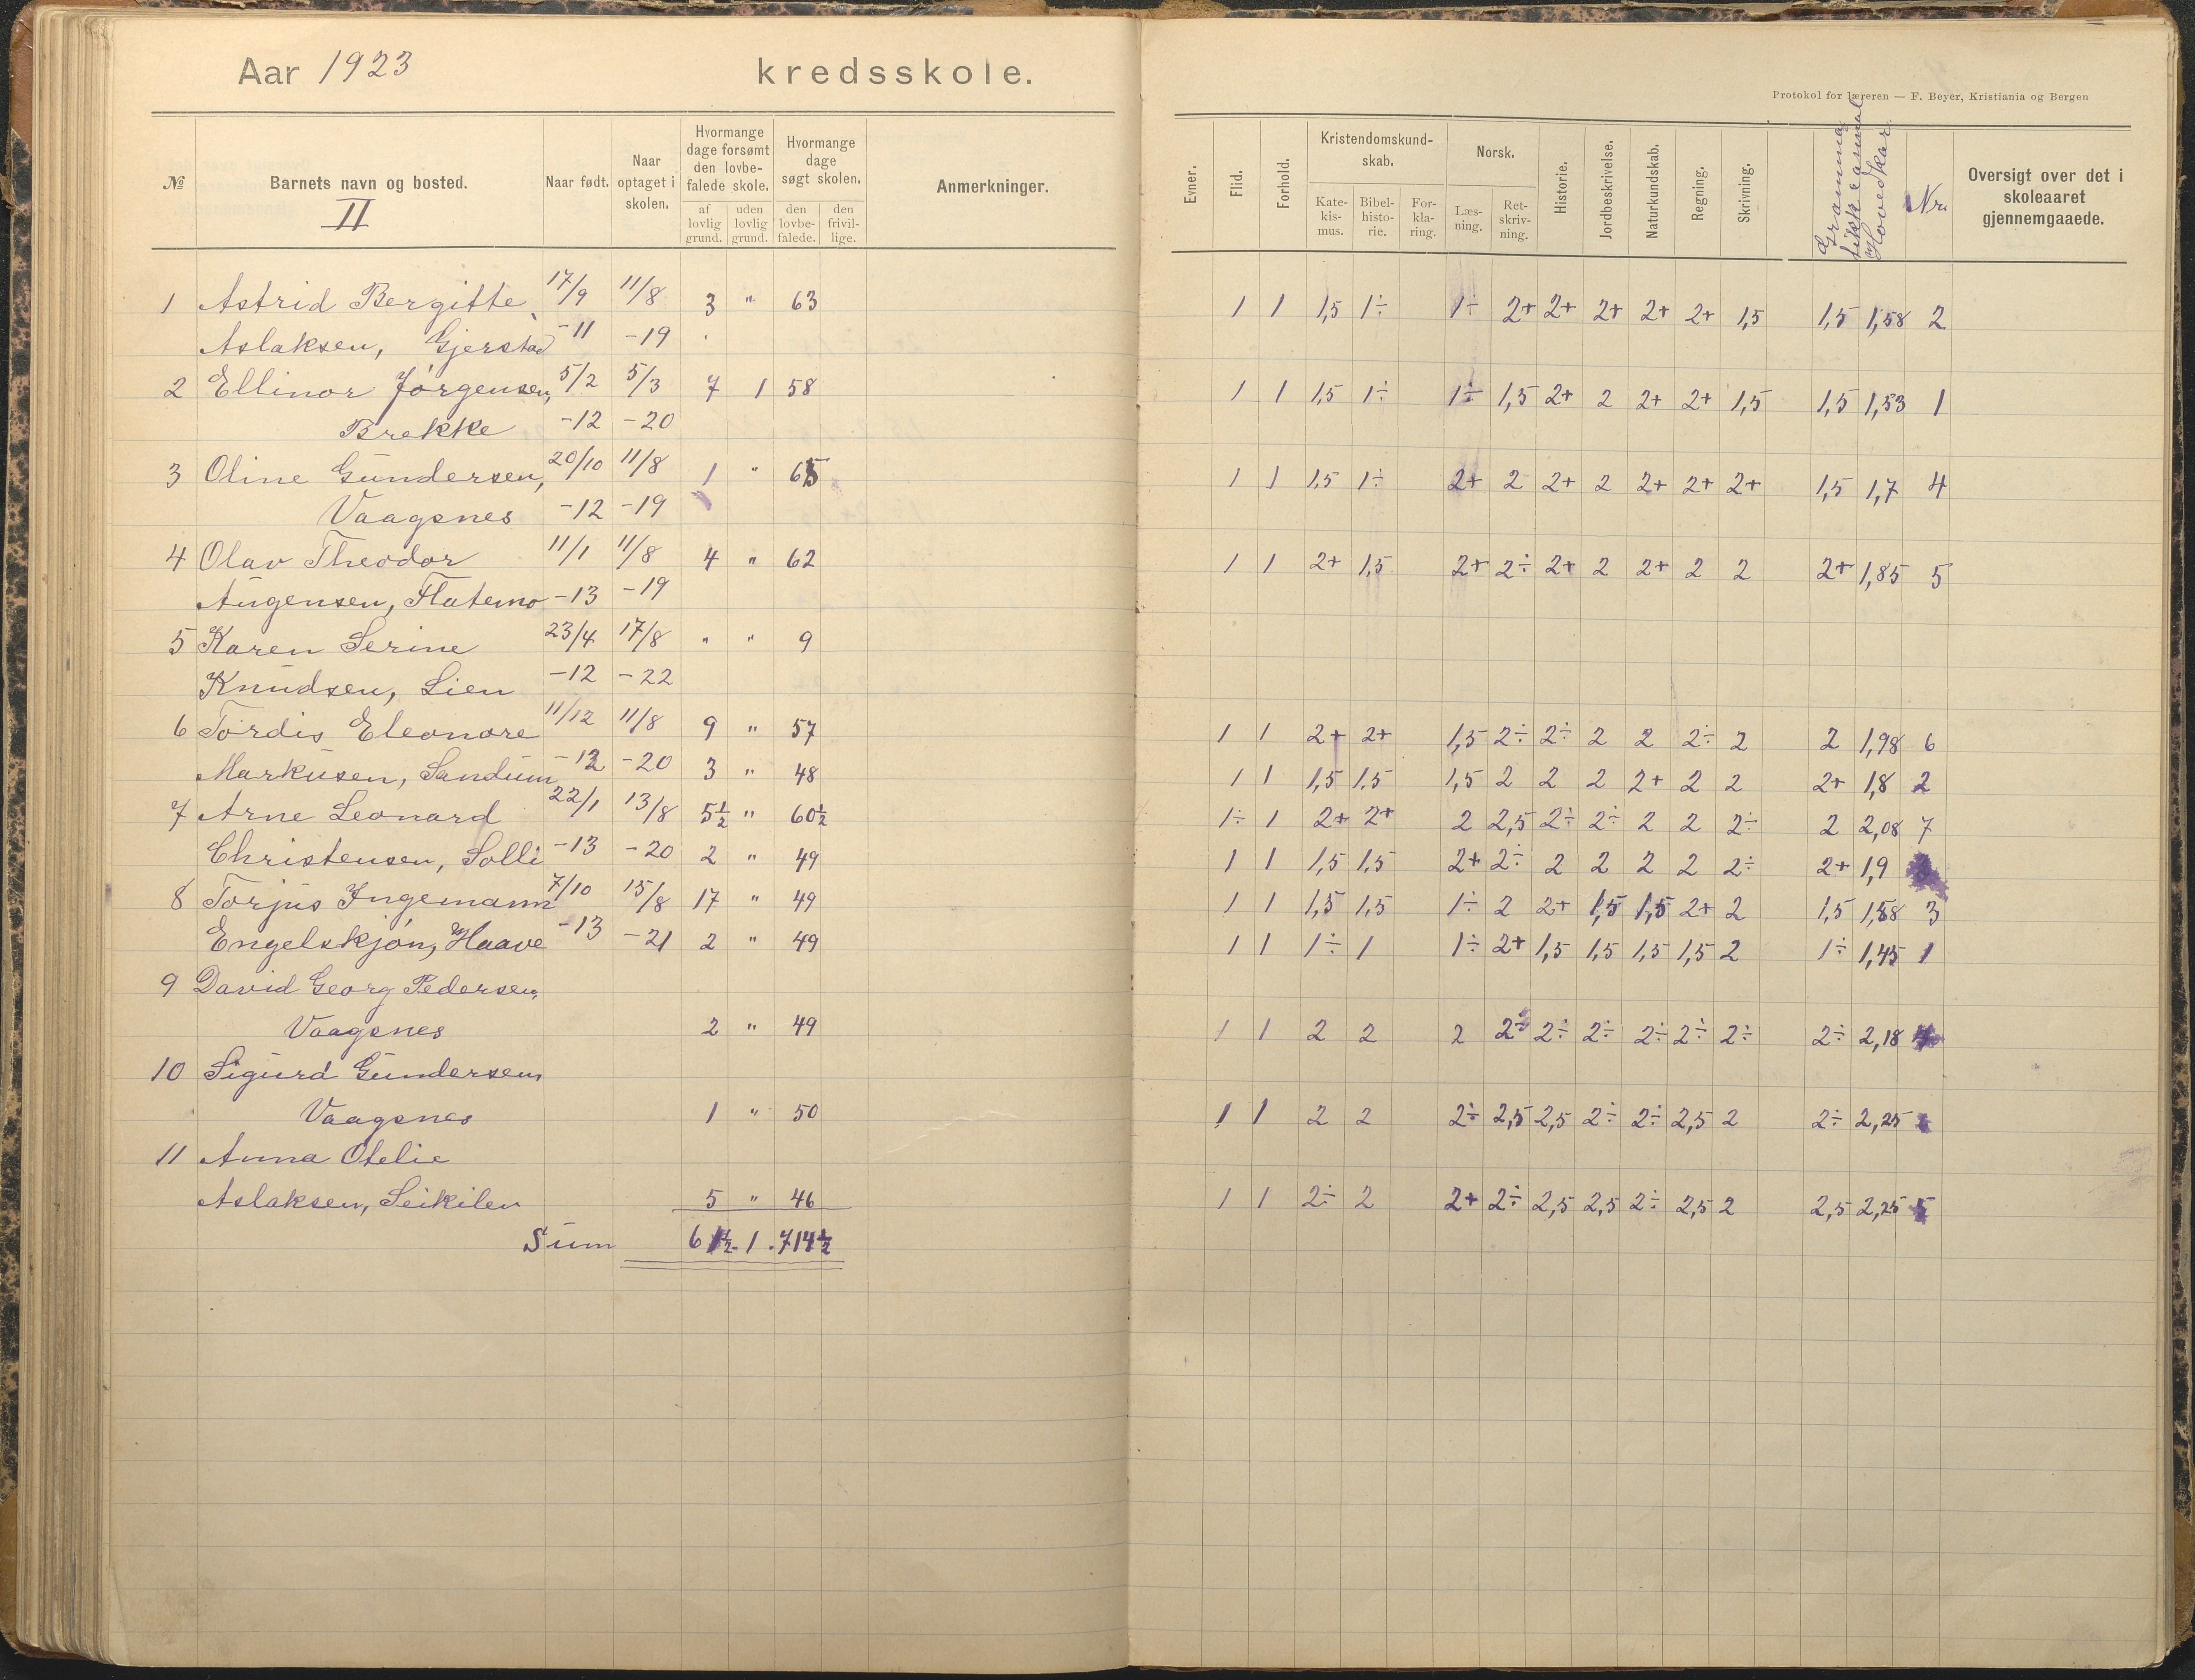 Aar 1923 kredsskole.
Protokol for læreren — F. Beyer, Kristiania og Bergen
№ Barnets navn og bosted. II Naar født. Naar optaget i skolen. Hvormange dage forsømt den lovbefalede skole. af lovlig grund. uden lovlig grund. Hvormange dage søgt skolen. den lovbefalede. den frivillige. Anmerkninger.
Evner. Flid. Forhold. Kristendomskundskab. Katekismus. Bibelhistorie. Forklaring. Norsk. Læsning. Retskrivning. Historie. Jordbeskrivelse. Naturkundskab. Regning. Skrivning. Hovedkar. Nr. Oversigt over det i skoleaaret gjennemgaaede.
1 Astrid Bergitte 17/9 11/8 3 " 63 1 1 1,5 1÷ 1÷ 2+ 2+ 2+ 2+ 2+ 1,5 1,5 1,58 2
Aslaksen, Gjerstad -11 -19
2 Ellinor Jørgensen, 5/2 5/3 7 1 58 1 1 1,5 1÷ 1÷ 1,5 2+ 2 2+ 2+ 1,5 1,5 1,53 1
Brekke -12 -20
3 Oline Gundersen, 20/10 11/8 1 " 65 1 1 1,5 1÷ 2+ 2 2+ 2 2+ 2+ 2+ 1,5 1,7 4
Vaagsnes -12 -19
4 Olav Theodor 11/1 11/8 4 " 62 1 1 2+ 1,5 2+ 2÷ 2+ 2 2+ 2 2 2+ 1,85 5
Augensen, Flatemo -13 -19
5 Karen Serine 23/4 17/8 " " 9
Knudsen, Lien -12 -22
6 Tordis Eleonore 11/12 11/8 9 " 57 1 1 2+ 2+ 1,5 2÷ 2÷ 2 2 2÷ 2 2 1,98 6
Markusen, Sandum -12 -20 3 " 48 1 1 1,5 1,5 1,5 2 2 2 2+ 2 2 2+ 1,8 2
7 Arne Leonard 22/1 13/8 5½ " 60½ 1÷ 1 2+ 2+ 2 2,5 2÷ 2÷ 2 2 2÷ 2 2,08 7
Christensen, Solli -13 -20 2 " 49 1 1 1,5 1,5 2+ 2÷ 2 2 2 2 2÷ 2+ 1,9
8 Torjus Ingemann 7/10 15/8 17 " 49 1 1 1,5 1,5 1÷ 2 2+ 1,5 1,5 2+ 2 1,5 1,58 3
Engelskjøn, Haave -13 -21 2 " 49 1 1 1÷ 1 1÷ 2+ 1,5 1,5 1,5 1,5 2 1÷ 1,45 1
9 David Georg Pedersen,
Vaagsnes 2 " 49 1 1 2 2 2 2÷ 2÷ 2÷ 2÷ 2÷ 2÷ 2÷ 2,18 4
10 Sigurd Gundersen
Vaagsnes 1 " 50 1 1 2 2 2÷ 2,5 2,5 2÷ 2÷ 2,5 2 2÷ 2,25
11 Anna Otelie
Aslaksen, Leikilen 5 " 46 1 1 2÷ 2 2+ 2÷ 2,5 2,5 2÷ 2,5 2 2,5 2,25 5
Sum 61½ - 1 . 714½